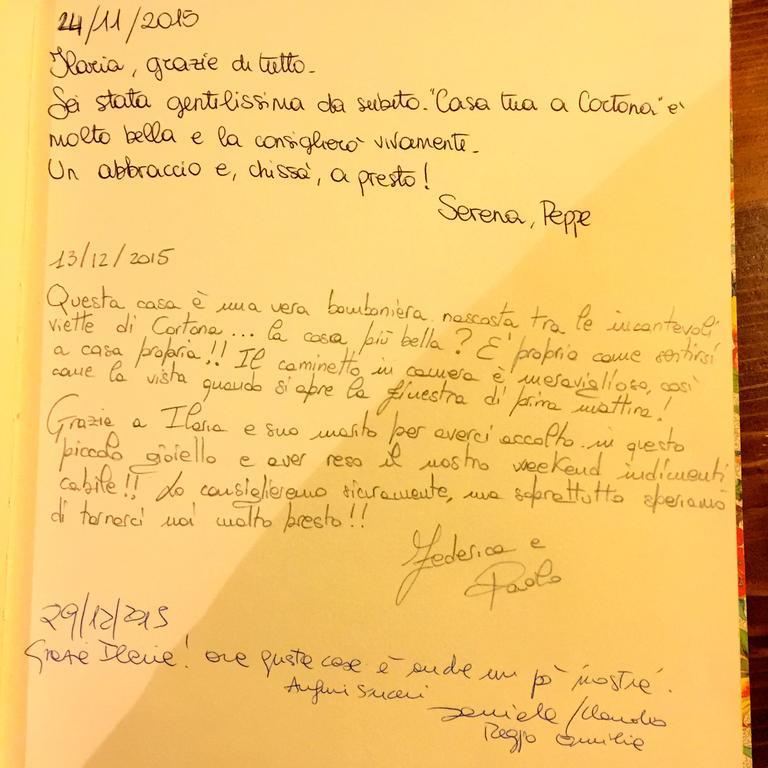 24/11/2015
Ilaria, grazie di tutto.
Sei stata gentilissima da subito. "Casa tua a Cortona" è
molto bella e la consiglierò vivamente.
Un abbraccio e, chissà, a presto!
Serena, Peppe
13/12/2015
Questa casa è una vera bomboniera nascosta tra le incantevoli
viette di Cortona... la cosa più bella? E' proprio come sentirsi
a casa propria!! Il caminetto in camera è meraviglioso, così
come la vista quando si apre la finestra di prima mattina!
Grazie a Ilaria e suo marito per averci accolto in questo
piccolo gioiello e aver reso il nostro weekend indimenti
cabile!! Lo consiglieremo sicuramente, ma soprattutto speriamo
di tornarci noi molto presto!!
Federica e
Paolo
29/12/2015
Grazie Ilaria! ora questa casa è anche un pò "nostra".
Auguri Sinceri
Daniela / Claudio
Reggio Emilia